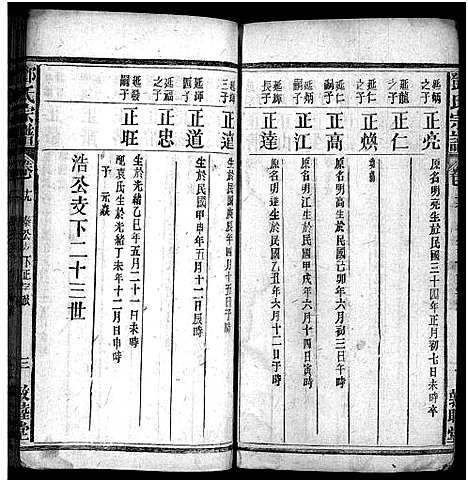 鄧氏宗譜
延炳之子
正亮
原名明亮生於民國三十四年正月初七日未時
延龍之子
正仁
延仁之子
正煥
延炳三子
正高
原名明高生於民國己卯年六月初三日午時
正江
原名明江生於民國甲戌年六月十四日寅時
正達
原名明達生於民國乙丑年六月十二日子時
正遠
延坤之子
正道
生於民國甲申年五月十一日辰時
延福之子
正忠
延發嗣子
正旺
生於光緒乙巳年五月二十一日未時
配袁氏生於光緒丁未年十二月日申時
子 元焱
浩公支下二十三世
氏宗譜
三
敦睦堂